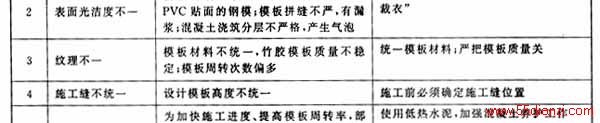 2 表面光洁度不一 PVC 贴面的钢模；模板拼缝不严，有漏浆；混凝土浇筑分层不严格，产生气泡 裁衣”
3 纹理不一 模板材料不统一，竹胶模板质量不稳定；模板周转次数偏多 统一模板材料；严把模板质量关
4 施工缝不统一 设计模板高度不统一 施工前必须确定施工缝位置
为加快施工进度、提高模板周转率，部 使用低热水泥，加强混凝土养护工作